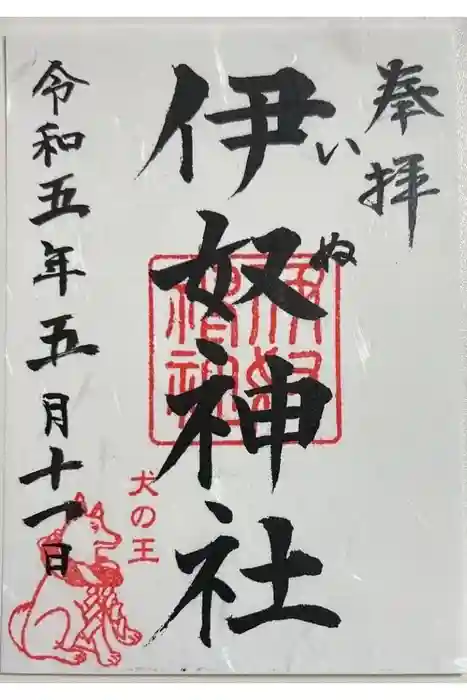 奉拝
伊奴神社
いぬ
伊奴神社
犬の王
令和五年五月十一日